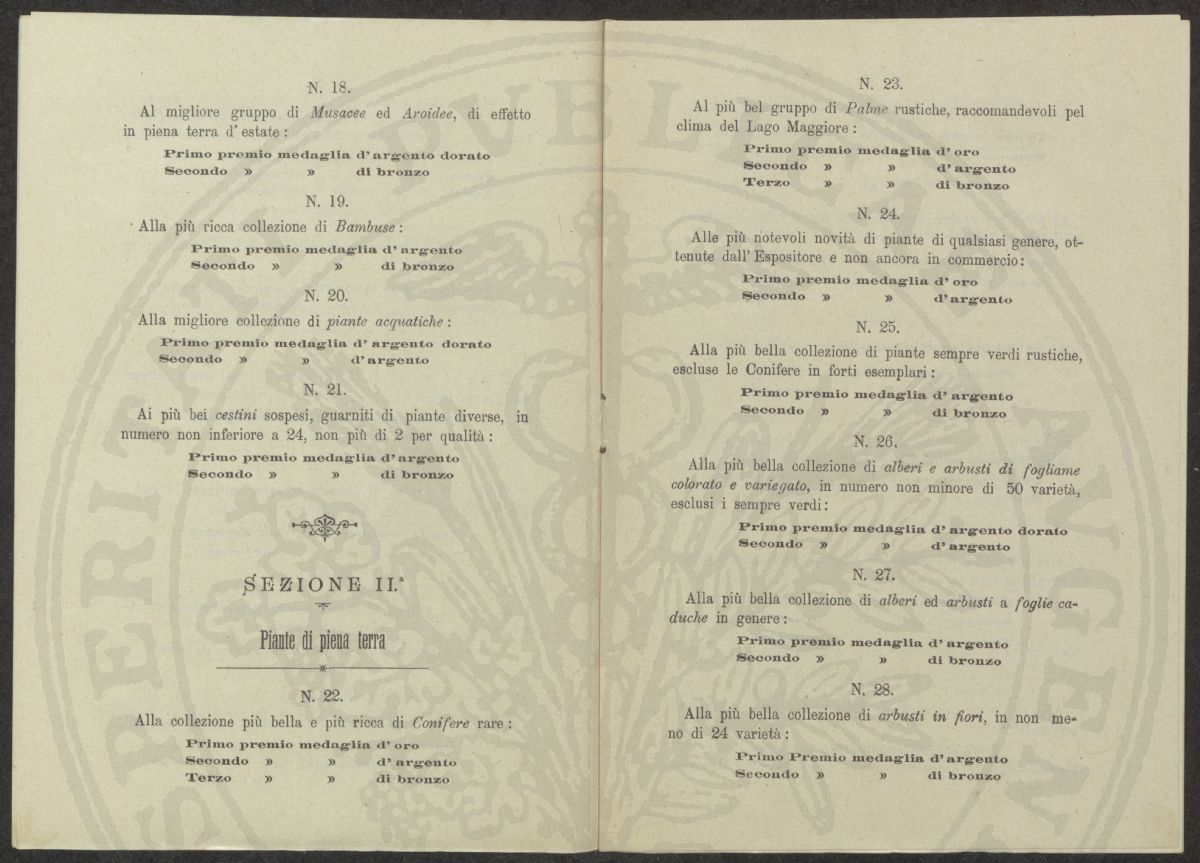 N. 18.
Al migliore gruppo di Musacee ed Aroidee, di effetto
in piena terra d'estate :
Primo premio medaglia d'argento dorato
Secondo » » di bronzo
N. 19.
Alla più ricca collezione di Bambuse :
Primo premio medaglia d'argento
Secondo » » di bronzo
N. 20.
Alla migliore collezione di piante acquatiche :
Primo premio medaglia d'argento dorato
Secondo » » d'argento
N. 21.
Ai più bei cestini sospesi, guarniti di piante diverse, in
numero non inferiore a 24, non più di 2 per qualità :
Primo premio medaglia d'argento
Secondo » » di bronzo
SEZIONE II.ª
Piante di piena terra
N. 22.
Alla collezione più bella e più ricca di Conifere rare :
Primo premio medaglia d'oro
Secondo » » d'argento
Terzo » » di bronzo
N. 23.
Al più bel gruppo di Palme rustiche, raccomandevoli pel
clima del Lago Maggiore :
Primo premio medaglia d'oro
Secondo » » d'argento
Terzo » » di bronzo
N. 24.
Alle più notevoli novità di piante di qualsiasi genere, ot-
tenute dall'Espositore e non ancora in commercio :
Primo premio medaglia d'oro
Secondo » » d'argento
N. 25.
Alla più bella collezione di piante sempre verdi rustiche,
escluse le Conifere in forti esemplari :
Primo premio medaglia d'argento
Secondo » » di bronzo
N. 26.
Alla più bella collezione di alberi e arbusti di fogliame
colorato e variegato, in numero non minore di 50 varietà,
esclusi i sempre verdi :
Primo premio medaglia d'argento dorato
Secondo » » d'argento
N. 27.
Alla più bella collezione di alberi ed arbusti a foglie ca-
duche in genere :
Primo premio medaglia d'argento
Secondo » » di bronzo
N. 28.
Alla più bella collezione di arbusti in fiori, in non me-
no di 24 varietà :
Primo Premio medaglia d'argento
Secondo » » di bronzo